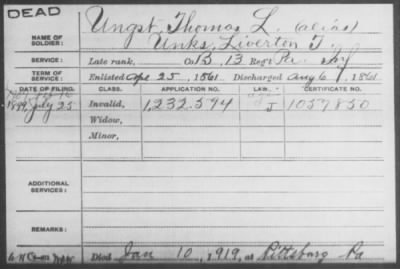 DEAD
NAME OF SOLDIER: Ungst, Thomas L. (alias)
Unks, Liverton T.
SERVICE: Late rank, Co. B, 13 Reg't Pa Inf
TERM OF SERVICE: Enlisted Apr 25, 1861 Discharged Aug 6, 1861
DATE OF FILING. CLASS. APPLICATION NO. LAW. CERTIFICATE NO.
1899 July 25 Invalid, 1,232.594 J 1057850
Widow,
Minor,
ADDITIONAL SERVICES:
REMARKS:
Died Jan 10, 1919, at Pittsburg Pa